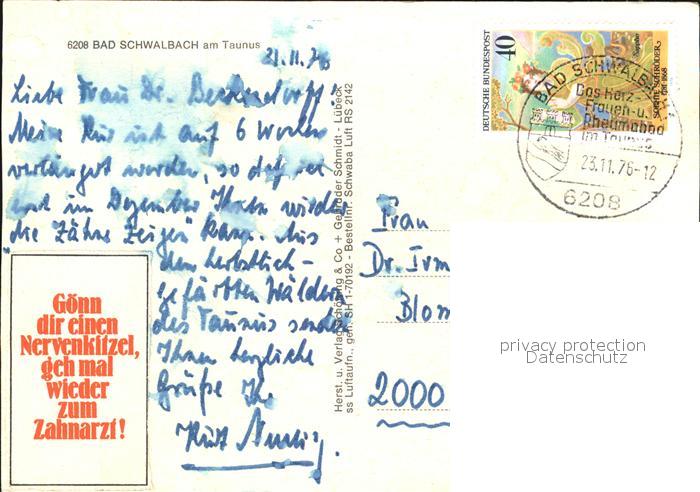 6208 BAD SCHWALBACH am Taunus
21.11.76
Liebe Frau Dr.
Meine Kur ist auf 6 Wochen
verlängert worden, so daß
erst im Dezember Ihnen wieder
"die Zähne zeigen" kann. Aus
den herbstlich-
gefärbten Wäldern
des Taunus sende
Ihnen herzliche
Grüße Ihr
Kurt
Gönn
dir einen
Nervenkitzel,
geh mal
wieder
zum
Zahnarzt!
Herst. u. Verlag Schöning & Co + Gebrüder Schmidt - Lübeck
ss Luftaufn., gen. SH 1-70192 - Bestellnr. Schwaba Luft RS 2142
DEUTSCHE BUNDESPOST
40
Sappho
SOPHIE SCHRÖDER
1781-1868
BAD SCHWALBACH
Das Herz-
Frauen-u.
Rheumabad
im Taunus
23.11.76-12
6208
Frau
Dr. Irm
Blom
2000
privacy protection
Datenschutz